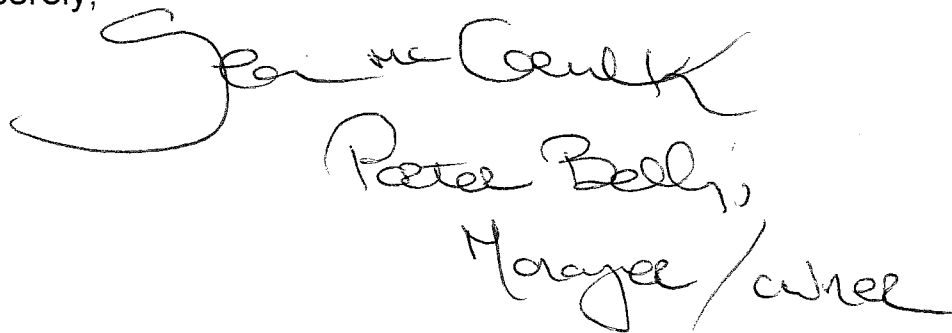 Sean McCaulk
Peter Belly,
Manager/owner